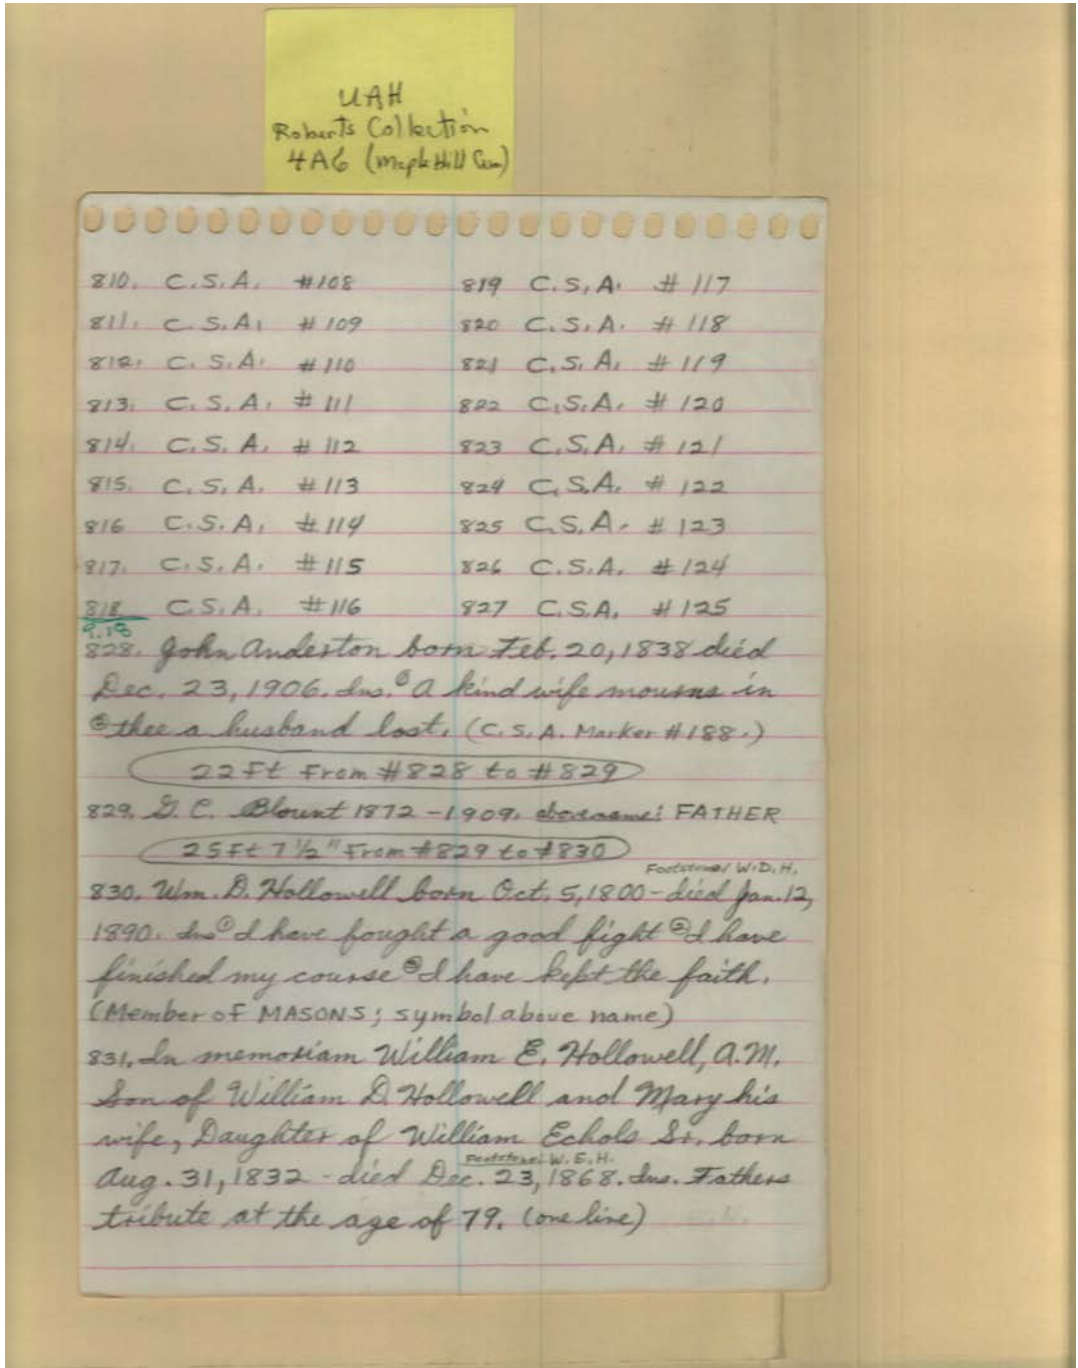 UAH
Roberts Collection
4A6 (Maple Hill Cem)
810. C.S.A. #108
811. C.S.A. #109
812. C.S.A. #110
813. C.S.A. #111
814. C.S.A. #112
815. C.S.A. #113
816 C.S.A. #114
817. C.S.A. #115
818 C.S.A. #116
819 C.S.A. #117
820 C.S.A. #118
821 C.S.A. #119
822 C.S.A. #120
823 C.S.A. #121
824 C.S.A. #122
825 C.S.A. #123
826 C.S.A. #124
827 C.S.A. #125
9.18
828. John Anderton born Feb. 20, 1838 died
Dec. 23, 1906. Ins. ① A kind wife mourns in
② thee a husband lost. (C.S.A. Marker #188.)
22 Ft From #828 to #829
829. G. C. Blount 1872 - 1909. above name: FATHER
25 Ft 7 1/2" From #829 to #830
Footstone: W.D.H.
830. Wm. D. Hollowell born Oct. 5, 1800 - died Jan. 12,
1890. Ins ① I have fought a good fight ② I have
finished my course ③ I have kept the faith.
(Member of MASONS; symbol above name)
831. In memoriam William E. Hollowell, A.M.
Son of William D. Hollowell and Mary his
wife, Daughter of William Echols Sr. born
Footstone: W.E.H.
Aug. 31, 1832 - died Dec. 23, 1868. Ins. Fathers
tribute at the age of 79. (one line)